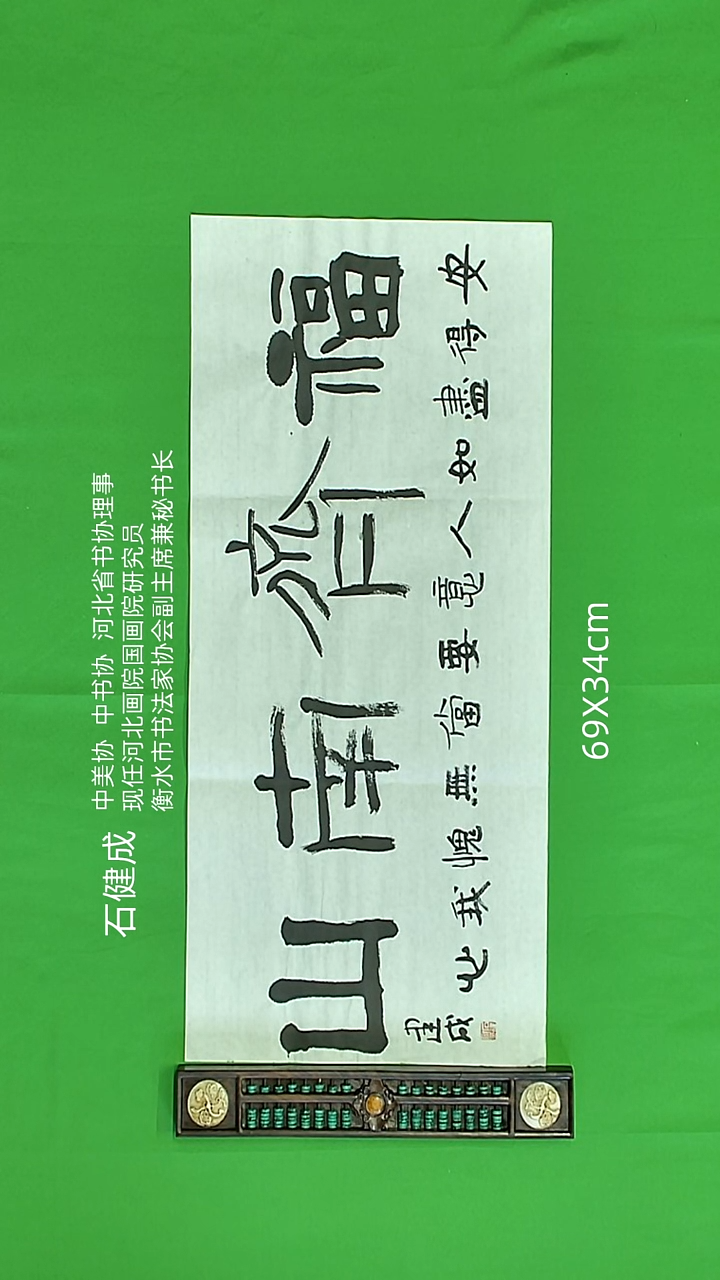 石健成
中美协 中书协 河北省书协理事
现任河北画院国画院研究员
衡水市书法家协会副主席兼秘书长
福齊南山
安得盡如人意要當無愧我心
健成
69X34cm